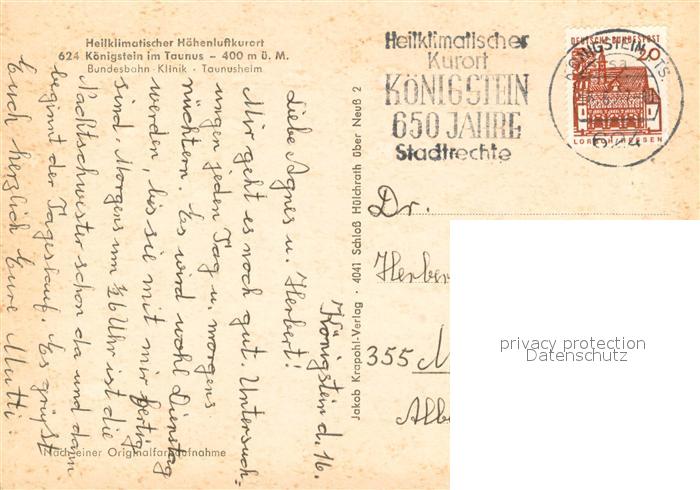 Heilklimatischer Höhenluftkurort
624 Königstein im Taunus – 400 m ü. M.
Bundesbahn-Klinik · Taunusheim
Königstein d. 16.
Liebe Agnes u. Herbert!
Mir geht es noch gut. Untersuch=
ungen jeden Tag u. morgens
nüchtern. Es wird wohl Dienstag
werden, bis sie mit mir fertig
sind. Morgens um ½6 Uhr ist die
Nachtschwester schon da und dann
beginnt der Tageslauf. Es grüßt
Euch herzlich Eure Mutti.
Nach einer Originalfarbaufnahme
Jakob Krapohl-Verlag · 4041 Schloß Hülchrath über Neuß 2
Heilklimatischer
Kurort
KÖNIGSTEIN
650 JAHRE
Stadtrechte
KÖNIGSTEIN, TS.
624
DEUTSCHE BUNDESPOST
20
LORSCH/HESSEN
Dr.
Herber
355 M
Albe
privacy protection
Datenschutz